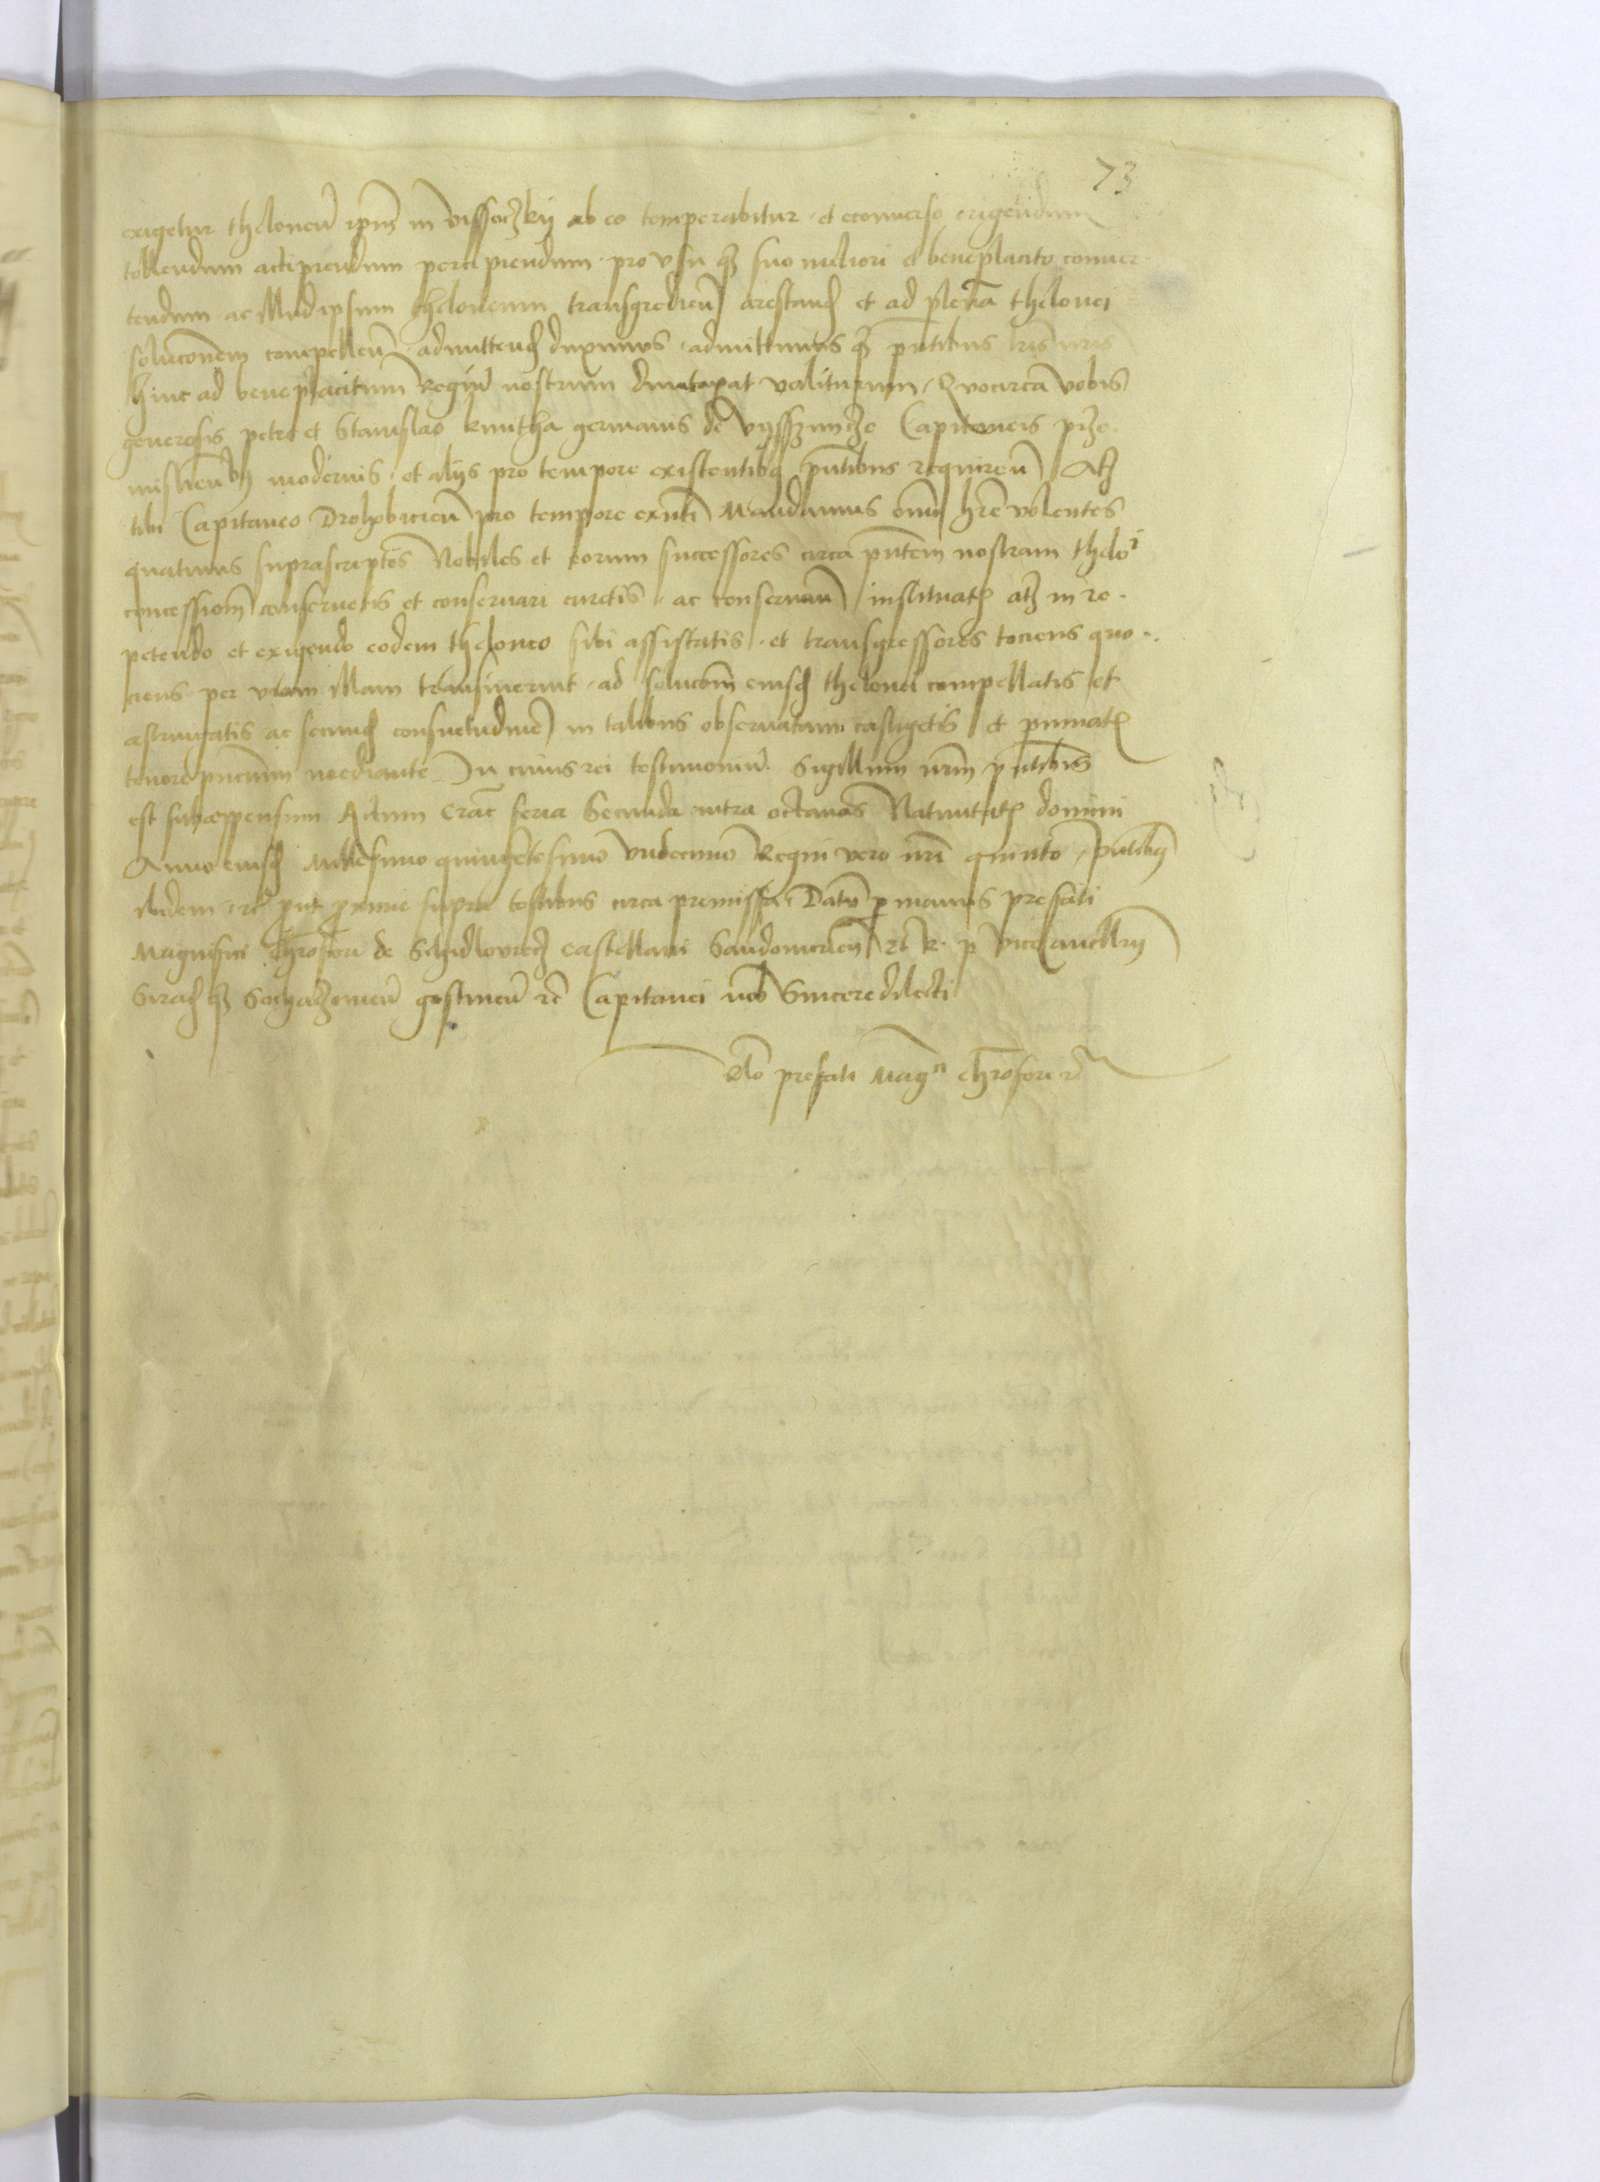 73
exigetur theloneū ipm̄ in Vissoczkij ab eo temperabitur et econuerso exigendum
tollendum accipiendum percipiendum pro vsu qz suo meliori et beneplacito conuer
tendum ac illud ipsum theloneum transgredien̄ arestand et ad plenā thelonei
soluconem compellen̄ admittend duximus admittimus qz pn̄tibus lr̄is nr̄is
hinc ad beneplacitum Regiū nostrum dumtaxat valiturum Quocirca vobis
generosis petro et Stanislao kmitha germanis de Vijssznicze Capitaneis prze
mislien̄ modernis et alijs pro tempore existentibq pn̄tibus requiren̄ Atqz
tibi Capitaneo Drohobicien̄ pro tempore exn̄ti Mandamus om̄ino hr̄e volentes
quatinus suprascriptos Nobiles et eorum successores circa pn̄tem nostram thelo i
concessiom̄ conseruetis et conseruari curetis ac conseruan̄ instituatz atqz in re
petendo et exigendo eodem theloneo sibi assistatis et transgressores tociens quo
ciens per viam illam transiuerint ad solucom̄ eiusd thelonei compellatis et
astringatis ac secund consuetudinē in talibus obseruatam castigetis et puniatz
tenore pn̄cium mediante In cuius rei testimoniū Sigillum nr̄m pn̄tibus
est subappensum Actum Crac feria Secunda intra octauas Natiuitatz domini
Anno eiusd Millesimo quingetesimo vndecimo Regni vero nr̄i quinto pn̄tibq
ibidem rc̄ put proxime supra testibus circa premissa Datū p manus prefati
Magnifici Chrofori de Schidlowecz Castellani Sandomirien̄ et R. p Vicecancellrij
Siradqz Sochaczouien̄ gostinen̄ rc̄ Capitanei nob Sincere dilecti
Rlo prefati Magci Chrofori rc̄